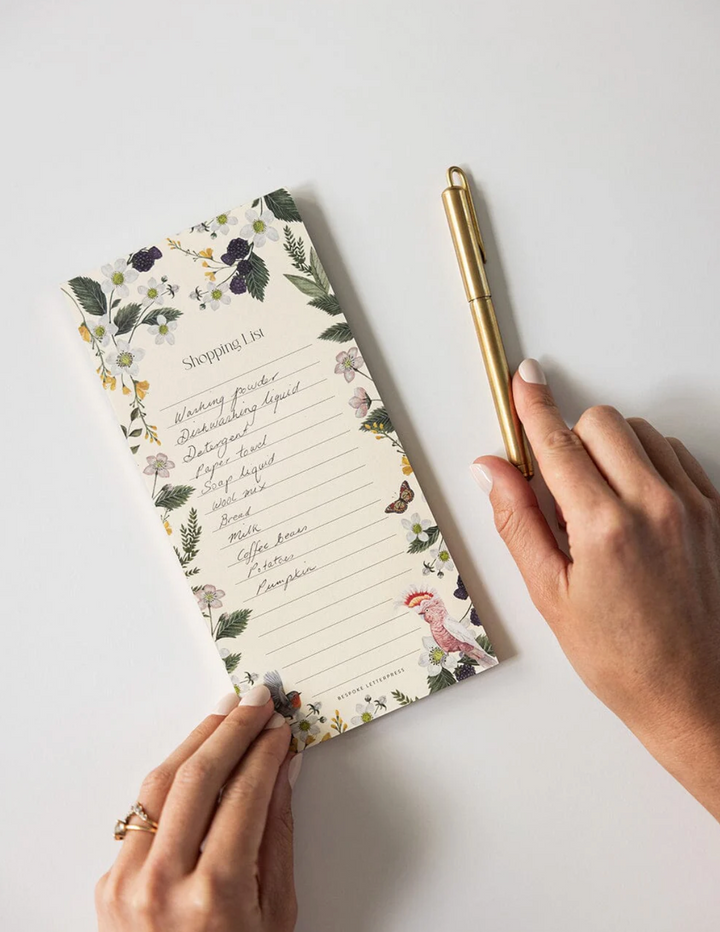 Shopping List
Washing powder
Dishwashing liquid
Detergent
Paper towel
Soap liquid
Wool mix
Bread
Milk
Coffee Beans
Potatoes
Pumpkin
BESPOKE LETTERPRESS